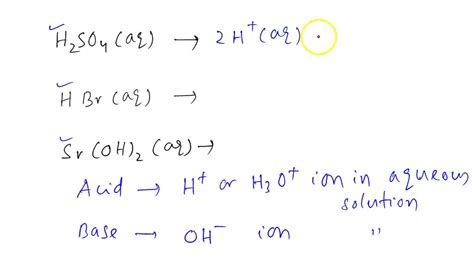 ✓H₂SO₄ (aq) → 2H⁺(aq)
✓HBr (aq) →
✓Sr(OH)₂ (aq) →
Acid → H⁺ or H₃O⁺ ion in aqueous
solution
Base → OH⁻ ion "